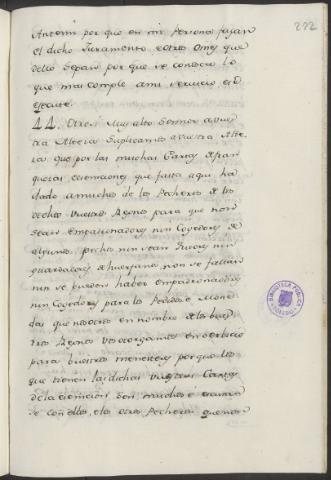 272
Antemi por que en mi Persona fagan
el dicho Juramento e otros omes que
dello sepan por que se conosca lo
que mas comple a mi servicio e lo
execute.
44. Otrosi Muy alto Señor a vues
tra Alteza Suplicamos a vuestra Alte
za que por las muchas Cartas de fran
quezas e esenciones que fasta aqui ha
dado a muchos de los Pecheros de los
dichos vuestros Reynos para que non
sean empadronadores nin Cogedores de
algunos pechos nin sean Tutores nin
guardadores de huerfanos non se fallan
nin se pueden haber empadronadores
nin Cogedores para los Pedidos e Mone
das que nosotros en nombre de los vues
tros Reynos vos otorgamos en servicio
para vuestros menesteres por que los
que tienen las dichas vuestras Cartas
de la esencion son muchos e
de con ellos, e los otros Pecheros que non
BIBLIOTECA PUBLICA
TOLEDO